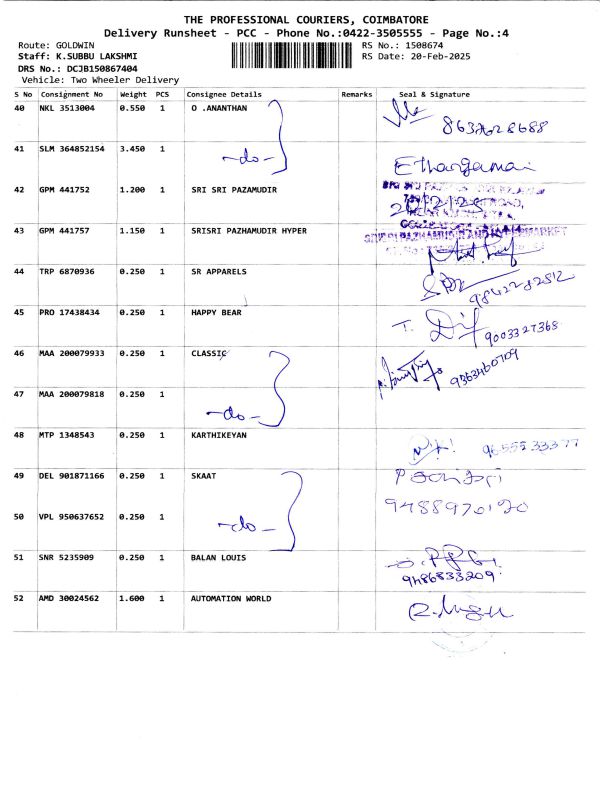 THE PROFESSIONAL COURIERS, COIMBATORE
Delivery Runsheet - PCC - Phone No.:0422-3505555 - Page No.:4
Route: GOLDWIN RS No.: 1508674
Staff: K.SUBBU LAKSHMI RS Date: 20-Feb-2025
DRS No.: DCJB150867404
Vehicle: Two Wheeler Delivery
S No Consignment No Weight PCS Consignee Details Remarks Seal & Signature
40 NKL 3513004 0.550 1 O .ANANTHAN
8637628688
41 SLM 364852154 3.450 1 -do-
42 GPM 441752 1.200 1 SRI SRI PAZAMUDIR
43 GPM 441757 1.150 1 SRISRI PAZHAMUDIR HYPER
44 TRP 6870936 0.250 1 SR APPARELS
9842282812
45 PRO 17438434 0.250 1 HAPPY BEAR
9003327368
46 MAA 200079933 0.250 1 CLASSIC
9363460709
47 MAA 200079818 0.250 1 -do-
48 MTP 1348543 0.250 1 KARTHIKEYAN
9655533377
49 DEL 901871166 0.250 1 SKAAT
9488970120
50 VPL 950637652 0.250 1 -do-
51 SNR 5235909 0.250 1 BALAN LOUIS
9486833209
52 AMD 30024562 1.600 1 AUTOMATION WORLD